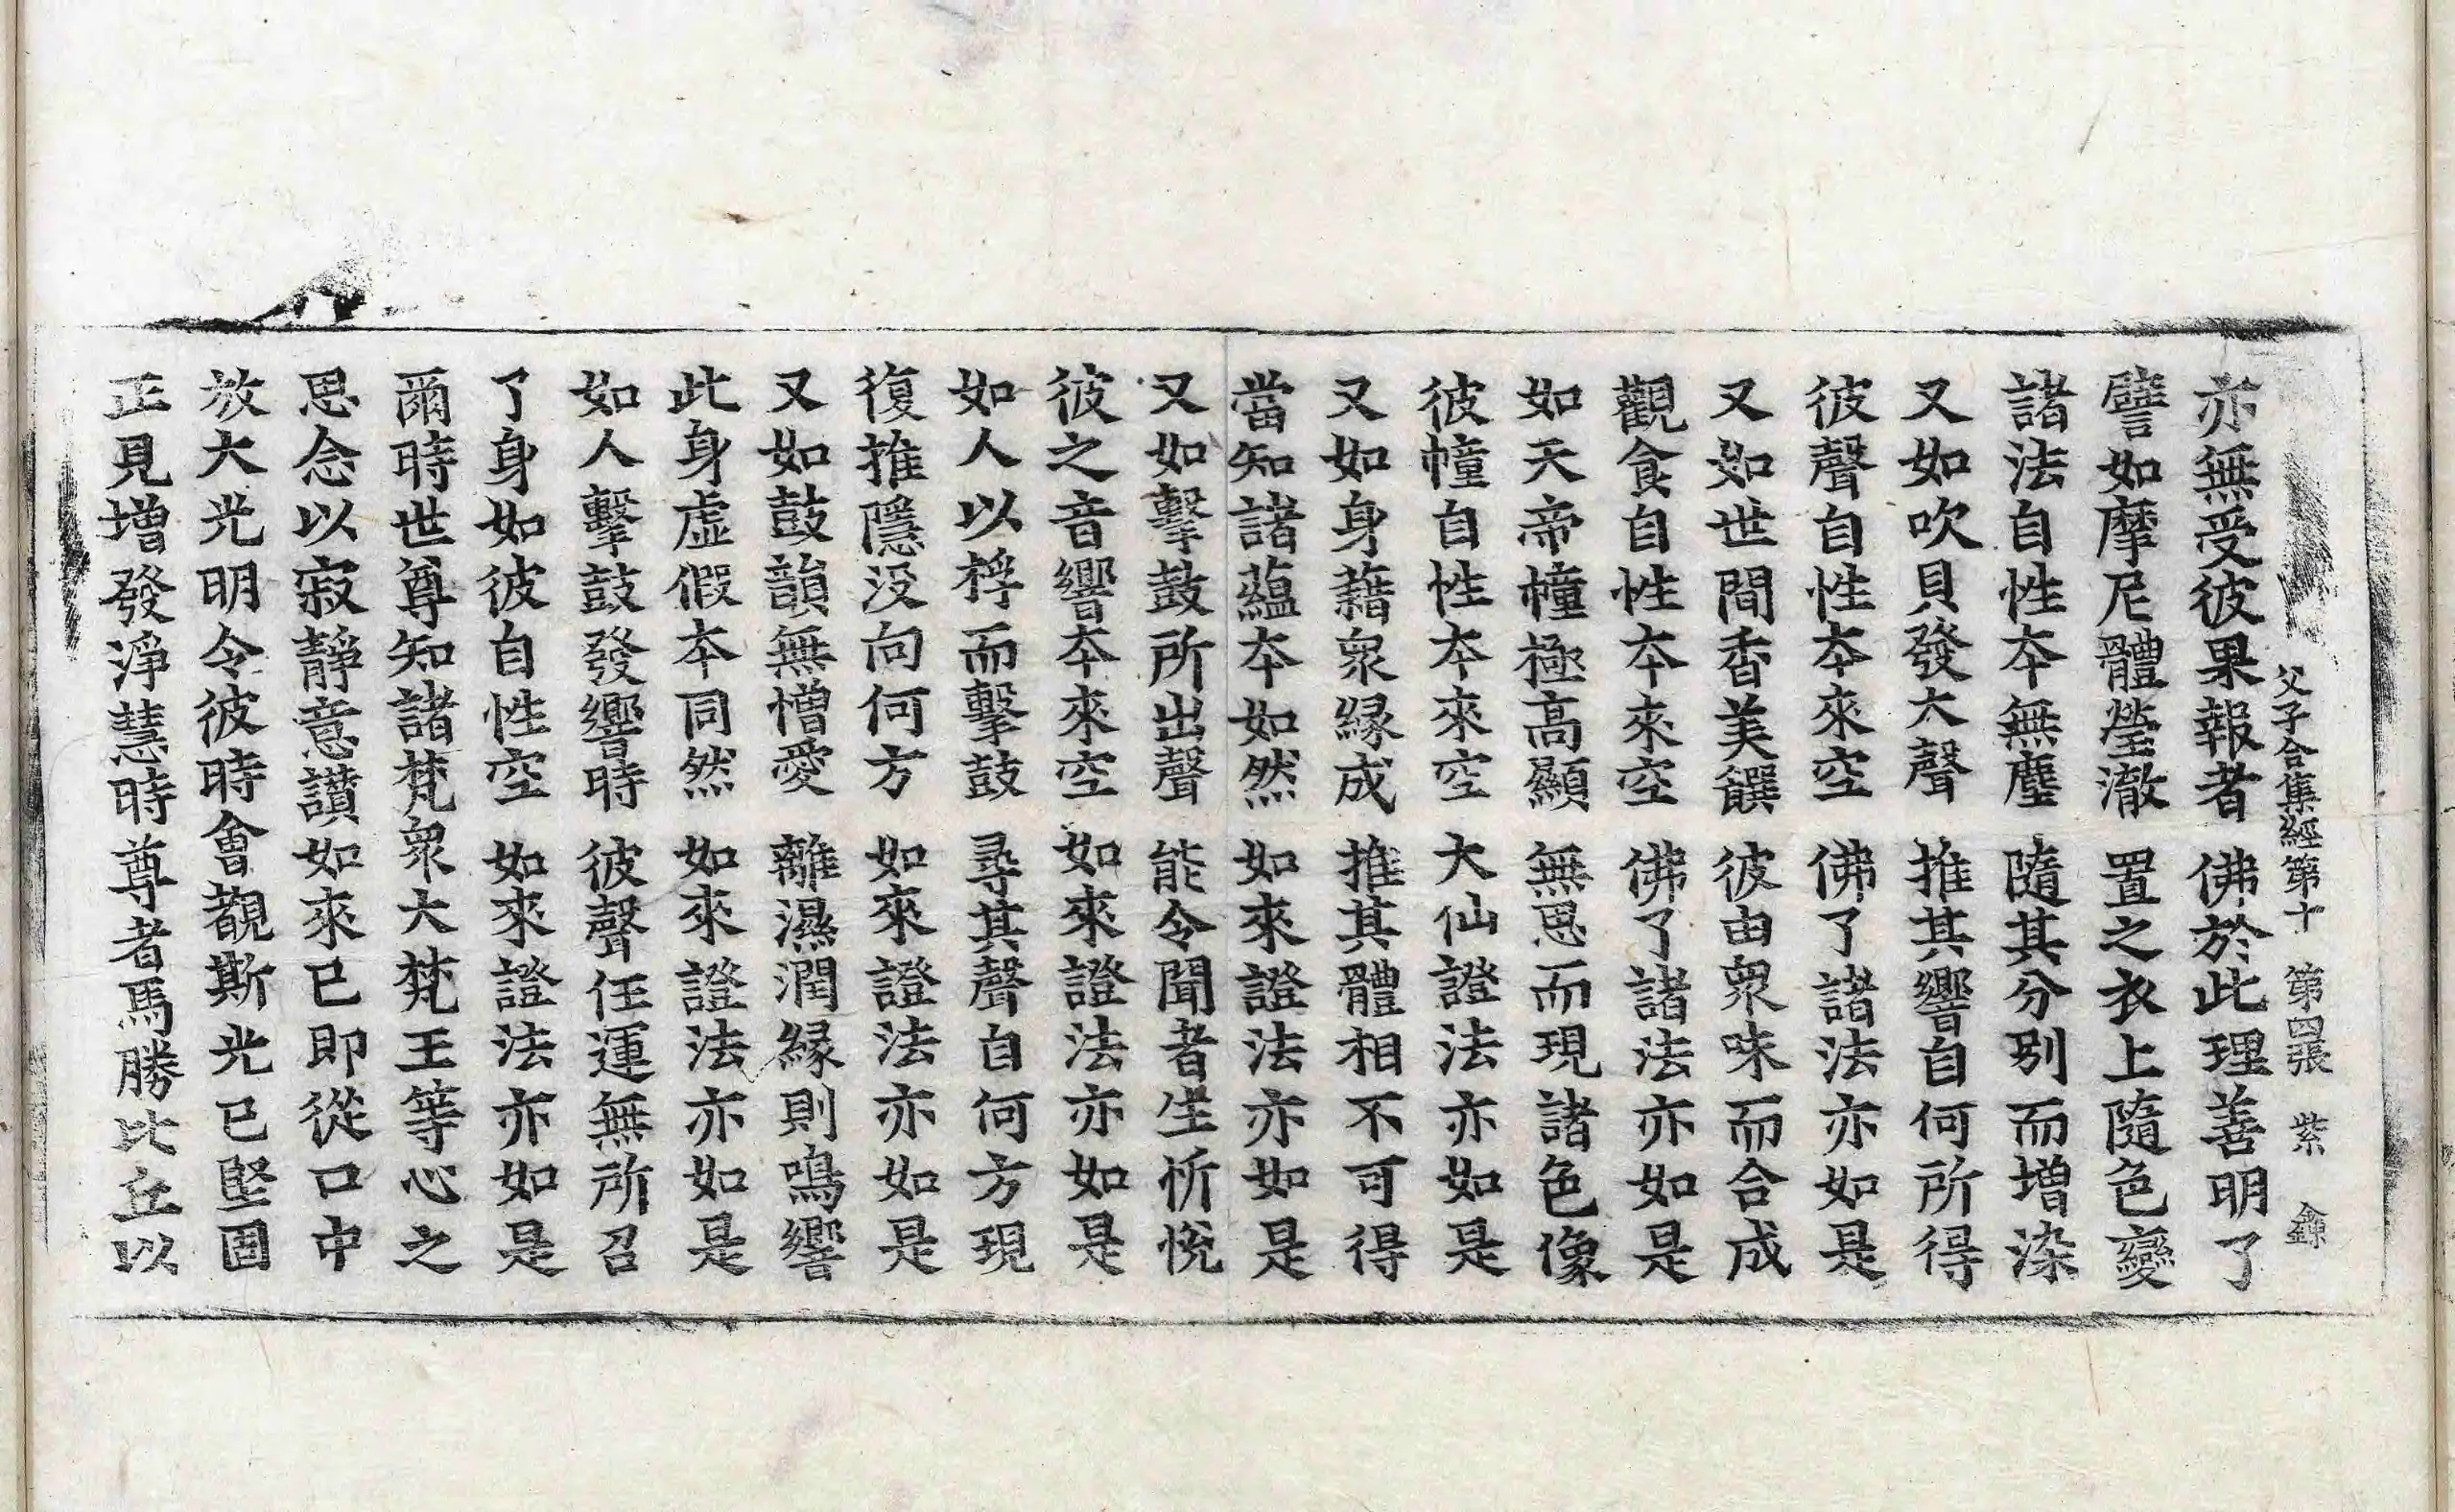 父子合集經第十 第四張 紫 𨥥
亦無受彼果報者 佛於此理善明了
譬如摩尼體瑩澈 置之衣上隨色變
諸法自性本無塵 隨其分別而增染
又如吹貝發大聲 推其響自何所得
彼聲自性本來空 佛了諸法亦如是
又如世間香美饌 彼由衆味而合成
觀食自性本來空 佛了諸法亦如是
如天帝幢極高顯 無思而現諸色像
彼幢自性本來空 大仙證法亦如是
又如身藉衆緣成 推其體相不可得
當知諸蘊本如然 如來證法亦如是
又如擊鼓所出聲 能令聞者生忻悅
彼之音響本來空 如來證法亦如是
如人以桴而擊鼓 尋其聲自何方現
復推隱沒向何方 如來證法亦如是
又如鼓韻無憎愛 離濕潤緣則鳴響
此身虛假本同然 如來證法亦如是
如人擊鼓發響時 彼聲任運無所召
了身如彼自性空 如來證法亦如是
爾時世尊知諸梵衆大梵王等心之
思念以寂靜意讚如來已即從口中
放大光明令彼時會觀斯光已堅固
正見增發淨慧時尊者馬勝比丘以